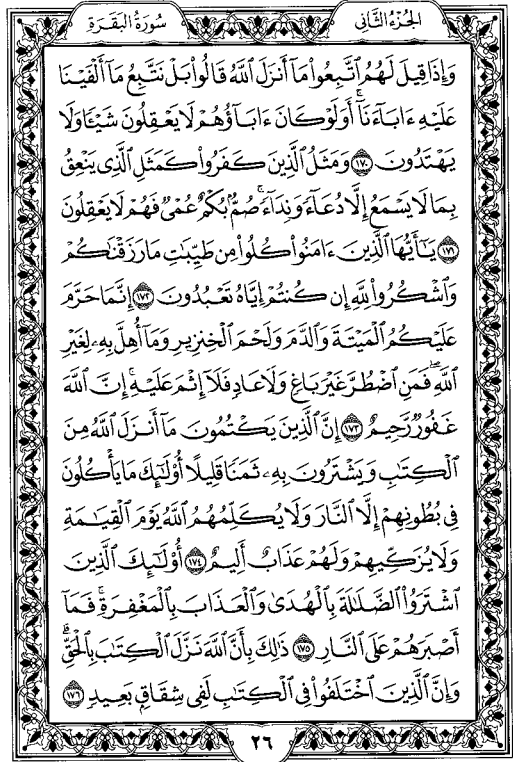 الجُزْءُ الثَّانِى
سُورَةُ البَقَرَةِ
وَإِذَا قِيلَ لَهُمُ ٱتَّبِعُوا۟ مَآ أَنزَلَ ٱللَّهُ قَالُوا۟ بَلْ نَتَّبِعُ مَآ أَلْفَيْنَا
عَلَيْهِ ءَابَآءَنَآ ۗ أَوَلَوْ كَانَ ءَابَآؤُهُمْ لَا يَعْقِلُونَ شَيْـًٔا وَلَا
يَهْتَدُونَ ١٧٠ وَمَثَلُ ٱلَّذِينَ كَفَرُوا۟ كَمَثَلِ ٱلَّذِى يَنْعِقُ
بِمَا لَا يَسْمَعُ إِلَّا دُعَآءً وَنِدَآءً ۚ صُمٌّۢ بُكْمٌ عُمْىٌ فَهُمْ لَا يَعْقِلُونَ
١٧١ يَـٰٓأَيُّهَا ٱلَّذِينَ ءَامَنُوا۟ كُلُوا۟ مِن طَيِّبَـٰتِ مَا رَزَقْنَـٰكُمْ
وَٱشْكُرُوا۟ لِلَّهِ إِن كُنتُمْ إِيَّاهُ تَعْبُدُونَ ١٧٢ إِنَّمَا حَرَّمَ
عَلَيْكُمُ ٱلْمَيْتَةَ وَٱلدَّمَ وَلَحْمَ ٱلْخِنزِيرِ وَمَآ أُهِلَّ بِهِۦ لِغَيْرِ
ٱللَّهِ ۖ فَمَنِ ٱضْطُرَّ غَيْرَ بَاغٍ وَلَا عَادٍ فَلَآ إِثْمَ عَلَيْهِ ۚ إِنَّ ٱللَّهَ
غَفُورٌ رَّحِيمٌ ١٧٣ إِنَّ ٱلَّذِينَ يَكْتُمُونَ مَآ أَنزَلَ ٱللَّهُ مِنَ
ٱلْكِتَـٰبِ وَيَشْتَرُونَ بِهِۦ ثَمَنًا قَلِيلًا أُو۟لَـٰٓئِكَ مَا يَأْكُلُونَ
فِى بُطُونِهِمْ إِلَّا ٱلنَّارَ وَلَا يُكَلِّمُهُمُ ٱللَّهُ يَوْمَ ٱلْقِيَـٰمَةِ
وَلَا يُزَكِّيهِمْ وَلَهُمْ عَذَابٌ أَلِيمٌ ١٧٤ أُو۟لَـٰٓئِكَ ٱلَّذِينَ
ٱشْتَرَوُا۟ ٱلضَّلَـٰلَةَ بِٱلْهُدَىٰ وَٱلْعَذَابَ بِٱلْمَغْفِرَةِ ۚ فَمَآ
أَصْبَرَهُمْ عَلَى ٱلنَّارِ ١٧٥ ذَٰلِكَ بِأَنَّ ٱللَّهَ نَزَّلَ ٱلْكِتَـٰبَ بِٱلْحَقِّ ۗ
وَإِنَّ ٱلَّذِينَ ٱخْتَلَفُوا۟ فِى ٱلْكِتَـٰبِ لَفِى شِقَاقٍۭ بَعِيدٍ ١٧٦
٢٦